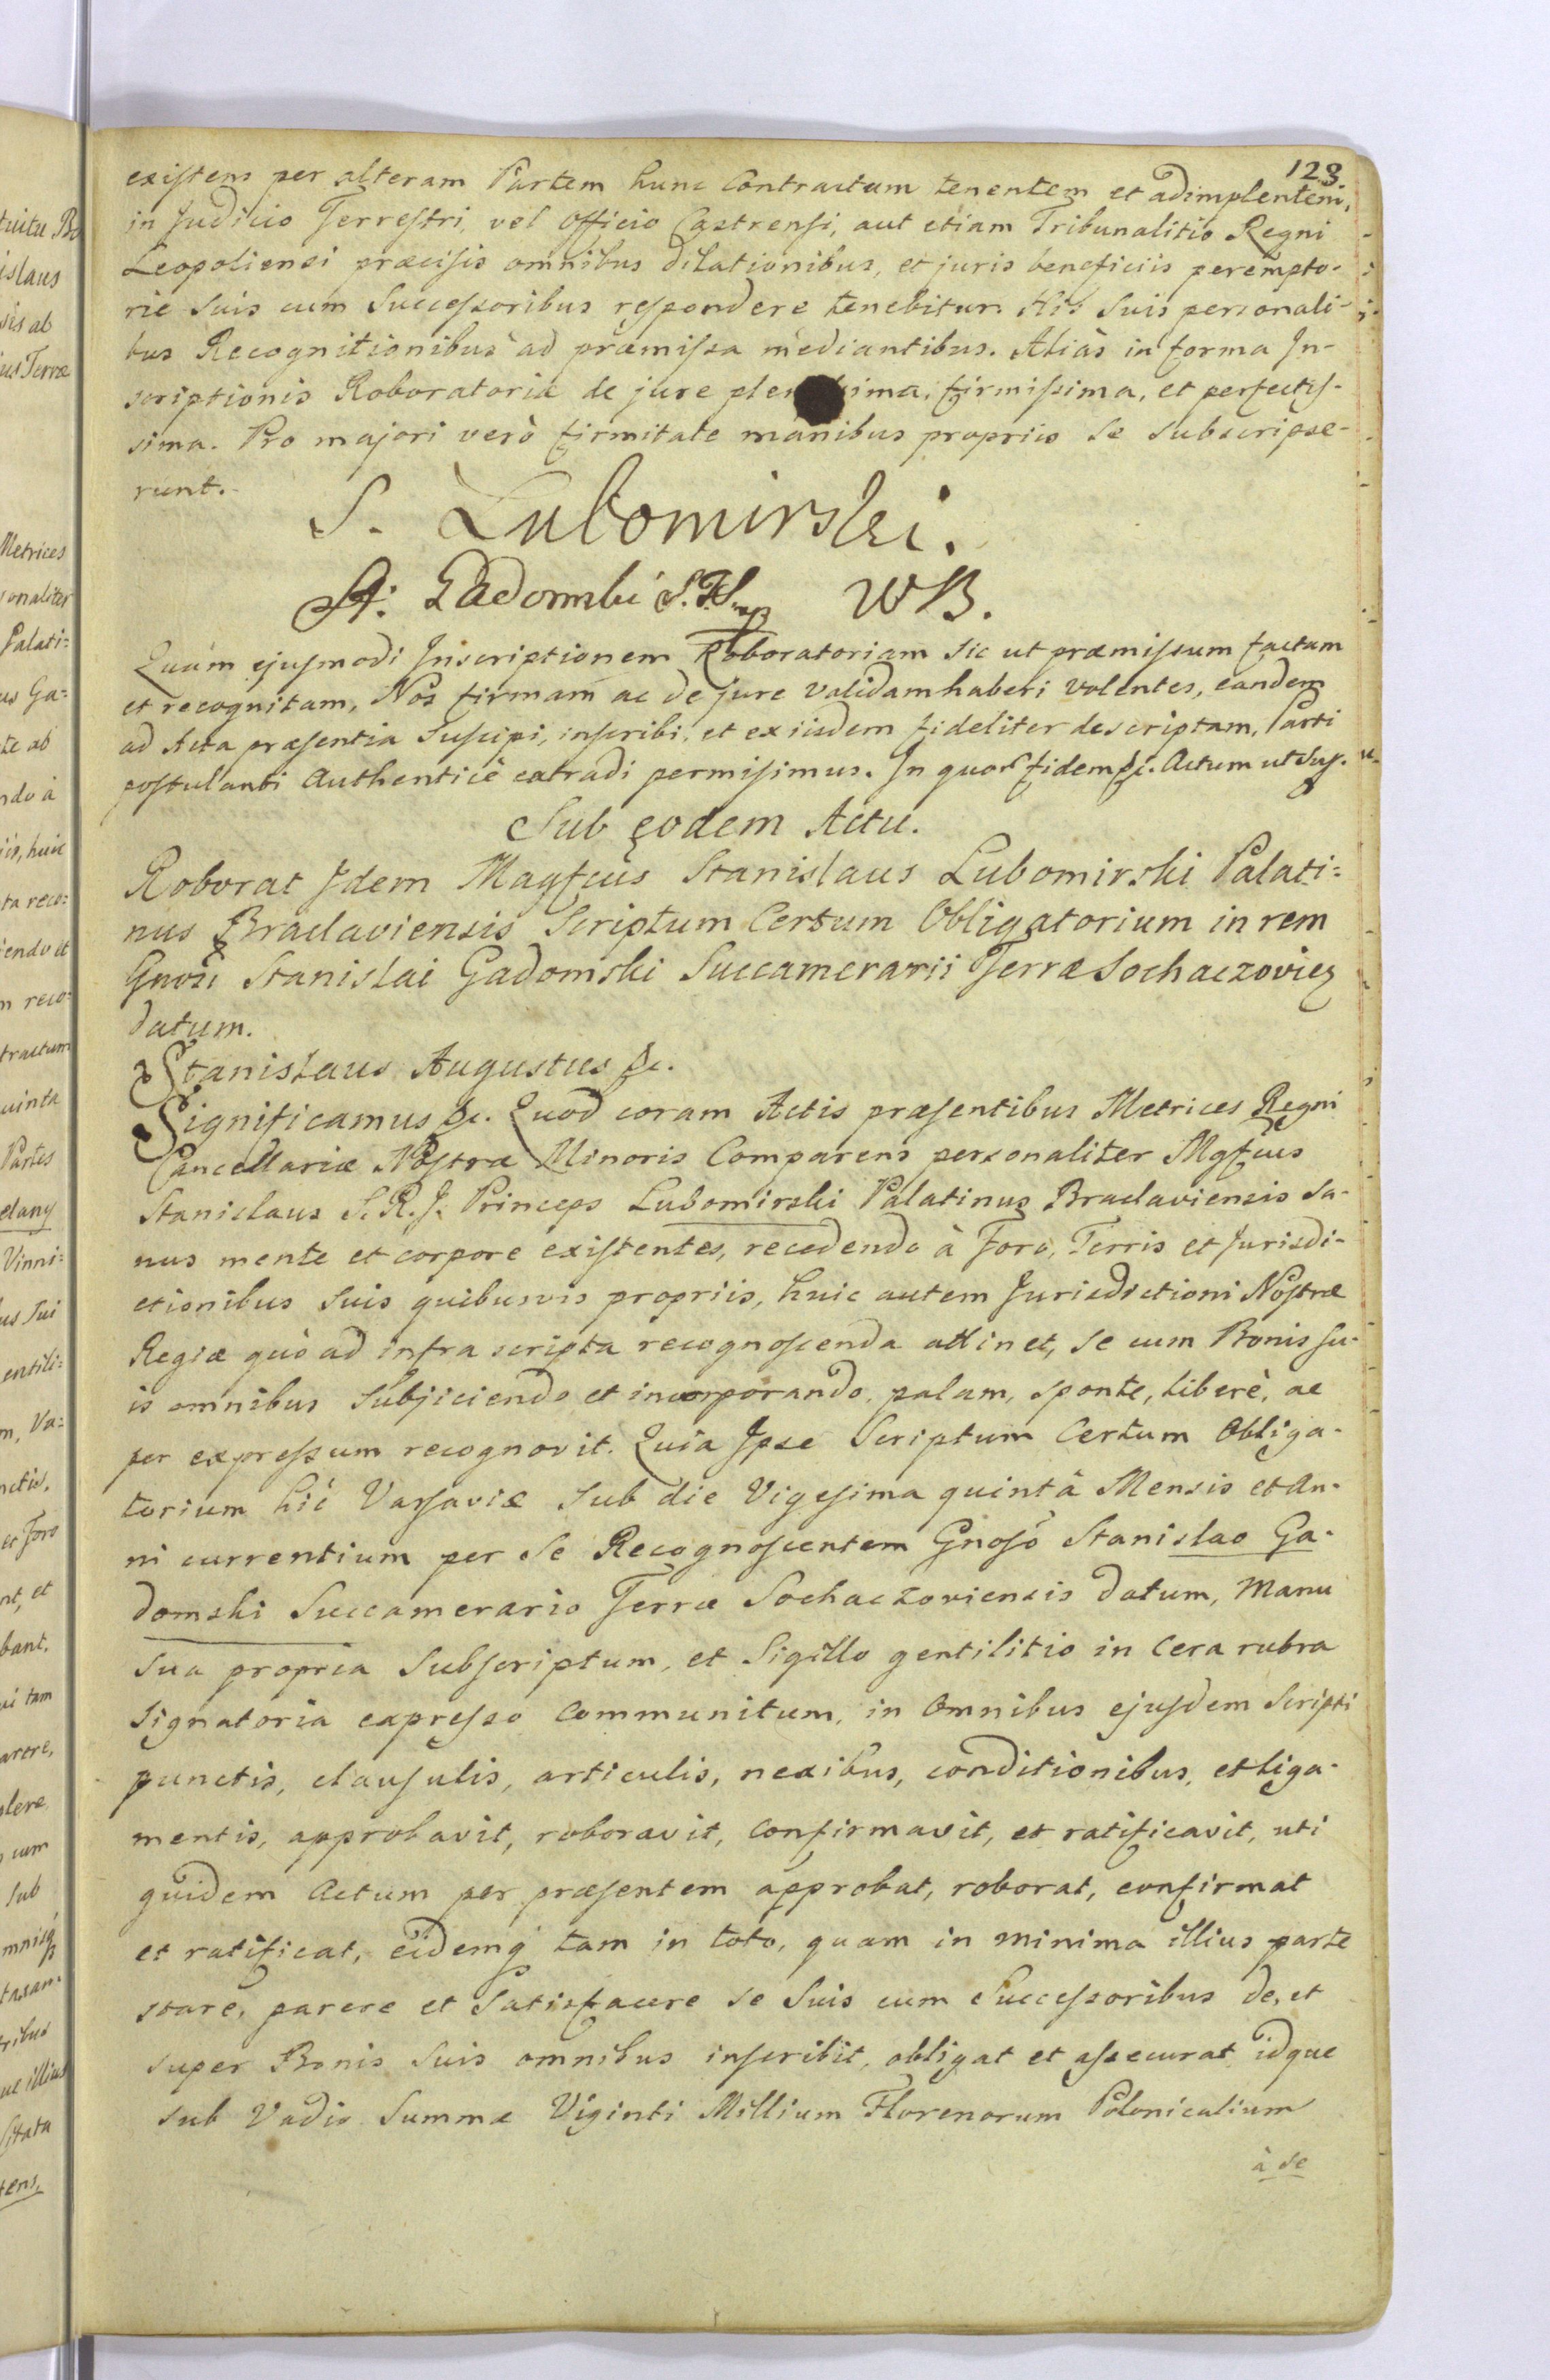 123
existens per alteram Partem hunc Contractum tenentem et adimplentem,
in Judicio Terrestri, vel Officio Castrensi, aut etiam Tribunalitio Regni
Leopoliensi præcisis omnibus dilationibus, et juris beneficiis perempto-
rie suis cum Successoribus respondere tenebitur. His suis personali-
bus Recognitionibus ad præmissa mediantibus. Aliàs in forma In-
scriptionis Roboratoriæ de jure firmissima, et perfectis-
sima. Pro majori verò firmitate manibus propriis se subscripse-
runt.
S. Lubomirski.
WB.
Quam ejusmodi Inscriptionem Roboratoriam sic ut præmissum factam
et recognitam, Nos firmam ac de jure validam haberi volentes, eandem
ad Acta præsentia suscipi, inscribi, et exiisdem fideliter descriptam, Parti
postulanti Authenticè extradi permisimus. In quor fidem &c. Actum ut Sup.
Sub eodem Actu.
Roborat Idem Magfcus Stanislaus Lubomirski Palati=
nus Braclaviensis Scriptum Certum Obligatorium in rem
Gnosi Stanislai Gadomski Succamerarii Terræ Sochaczovien
datum.
Stanislaus Augustus &c.
Significamus &c. Quod coram Actis præsentibus Metrices Regni
Cancellariæ Nostræ Minoris Comparens personaliter Mgfcus
Stanislaus S. R. J. Princeps Lubomirski Palatinus Braclaviensis sa-
nus mente et corpore existentes, recedendo à Foro, Terris et Jurisdi-
ctionibus suis quibusvis propriis, huic autem Jurisdictioni Nostræ
Regiæ quò ad infra scripta recognoscenda attinet, se cum Bonis su-
is omnibus subjiciendo et incorporando, palam, sponte, liberè, ac
per expressum recognovit. Quia Ipse Scriptum Certum Obliga-
torium hic Varsaviæ sub die Vigesima quintâ Mensis et An-
ni currentium per se Recognoscentem Gnoso Stanislao Ga-
domski Succamerario Terræ Sochaczoviensis datum, Manu
sua propria Subscriptum, et Sigillo gentilitio in Cera rubra
signatoria expresso Communitum, in Omnibus ejusdem Scripti
punctis, clausulis, articulis, nexibus, conditionibus, et liga-
mentis, approbavit, roboravit, confirmavit, et ratificavit, uti
quidem Actum per præsentem approbat, roborat, confirmat
et ratificat, eidemq tam in toto, quam in minima illius parte
stare, parere et satisfacere se suis cum Successoribus de, et
super Bonis suis omnibus inscribit, obligat et assecurat idque
sub Vadio Summæ Viginti Millium Florenorum Polonicalium
à se